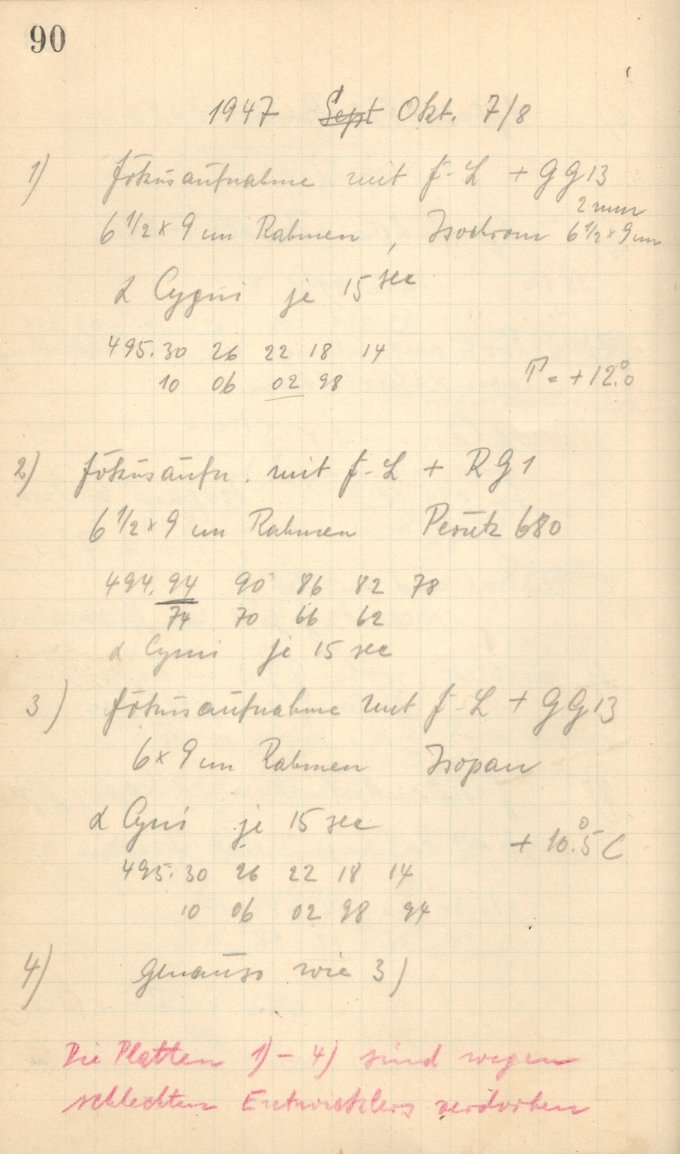 90
1947 Sept Okt. 7/8
1) Fokusaufnahme mit f-L + GG13
2 mm
6 1/2 x 9 cm Rahmen, Isochrom 6 1/2 x 9 cm
α Cygni je 15 sec
495.30 26 22 18 14
10 06 02 98 T = +12.°0
2) Fokusaufn. mit f-L + RG1
6 1/2 x 9 cm Rahmen Perutz 680
494.94 90 86 82 78
74 70 66 62
α Cygni je 15 sec
3) Fokusaufnahme mit f-L + GG13
6 x 9 cm Rahmen Isopan
α Cygni je 15 sec
+ 10.°5 C
495.30 26 22 18 14
10 06 02 98 94
4) Genauso wie 3)
Die Platten 1) - 4) sind wegen
schlechten Entwicklers verdorben